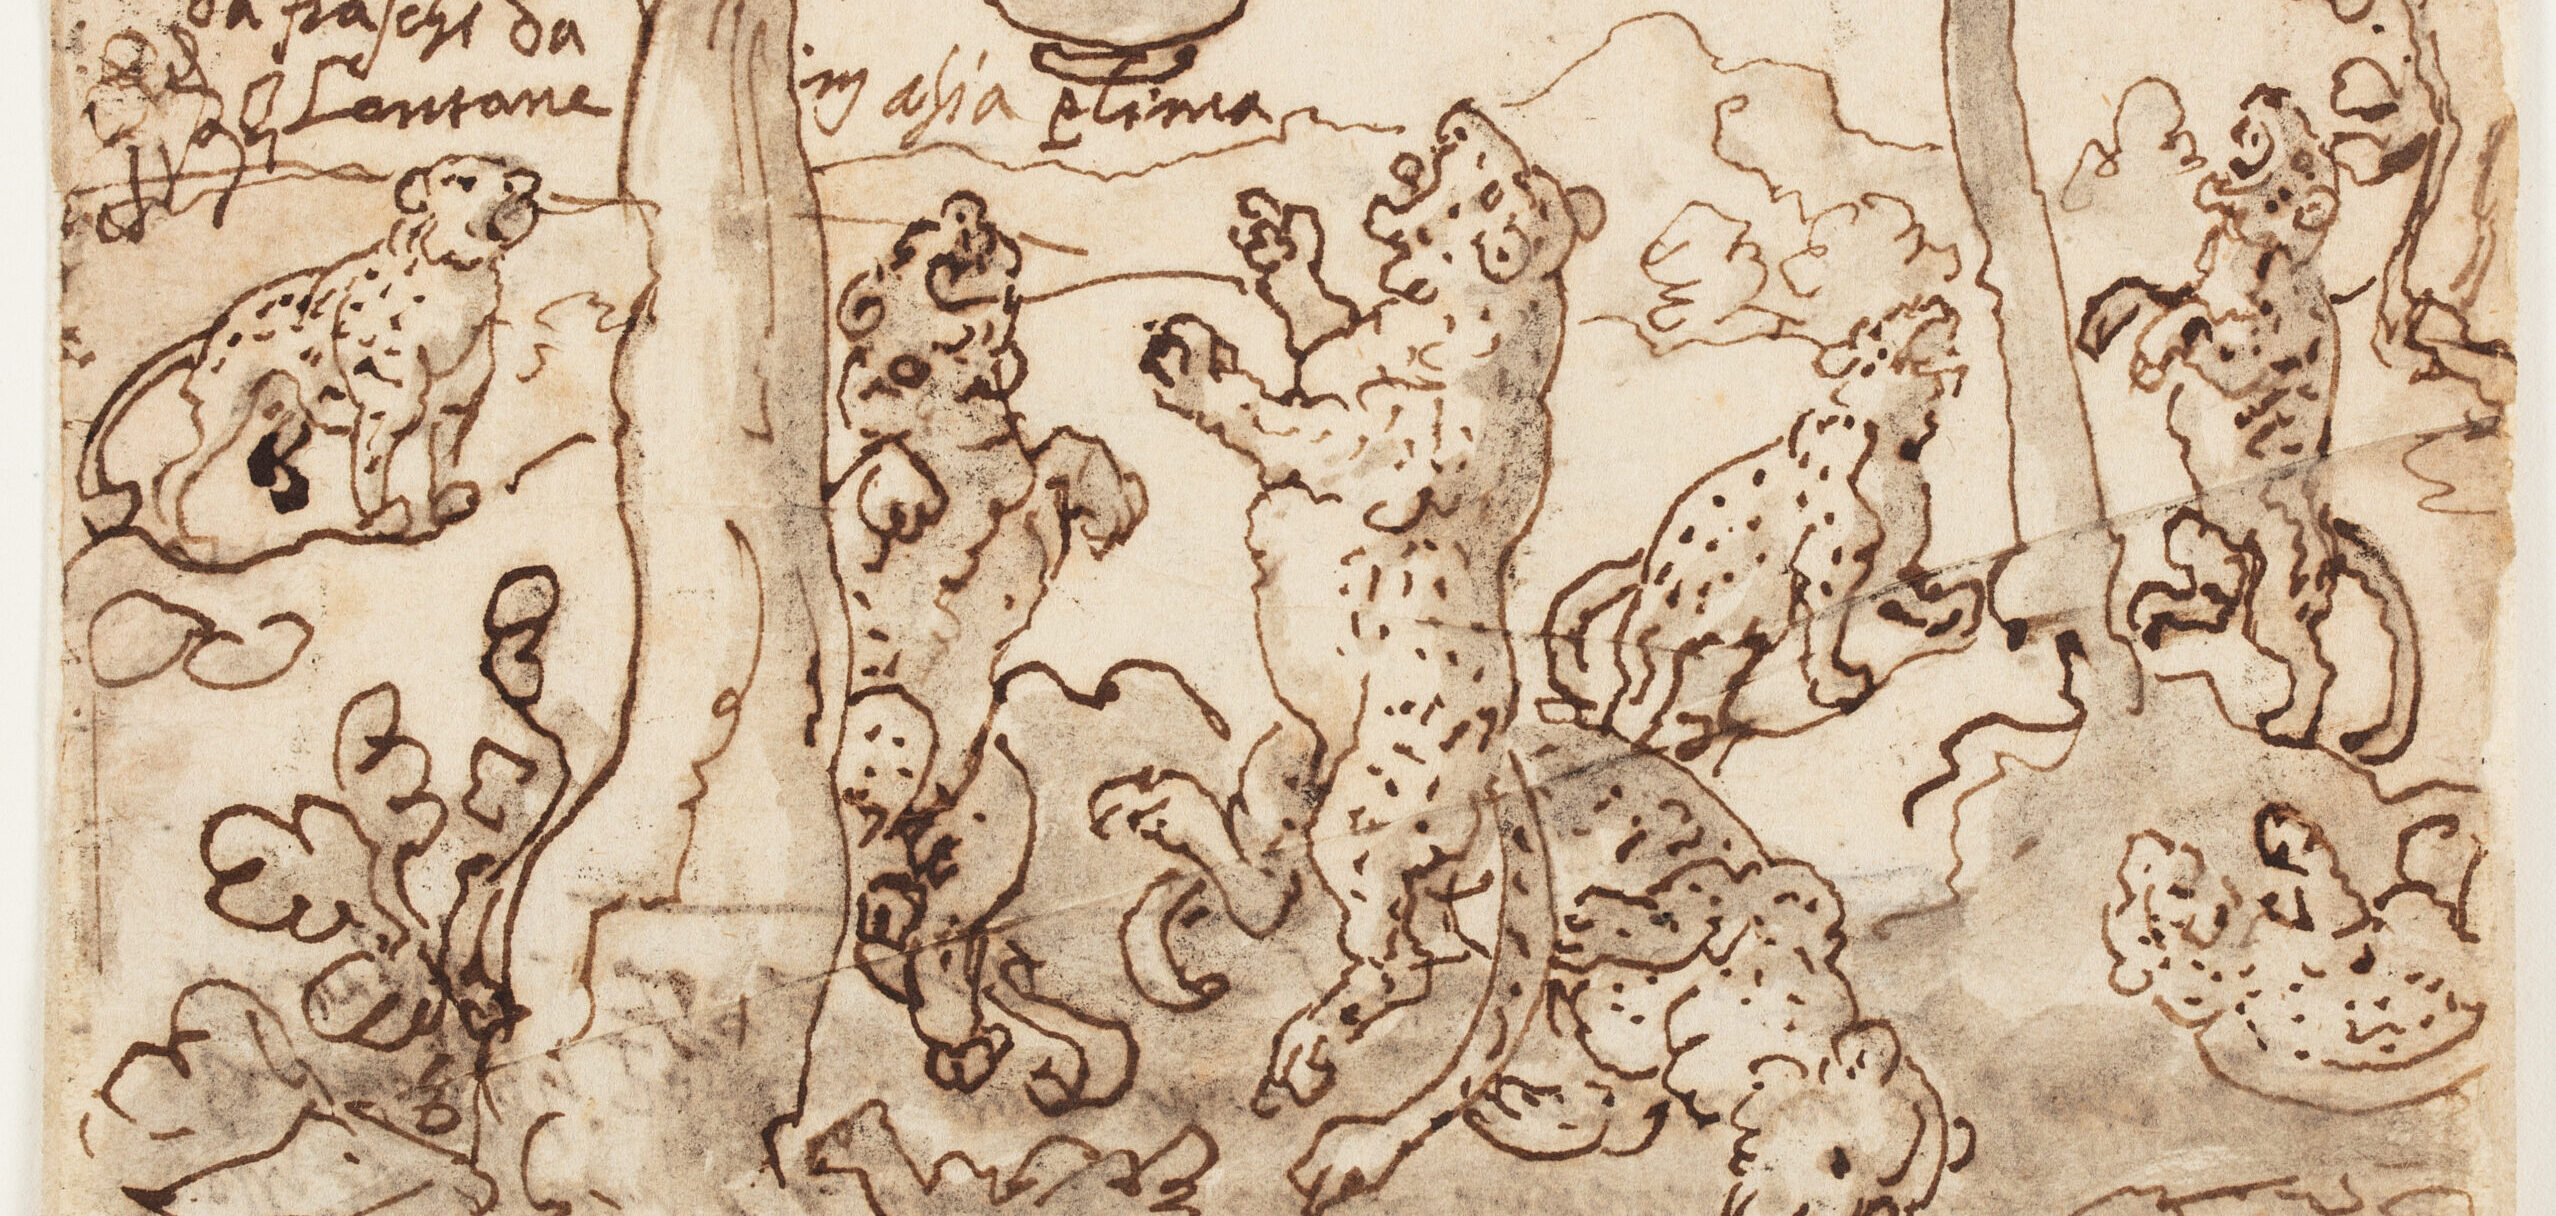 da fiaschi da
Lontane
in asia plinio